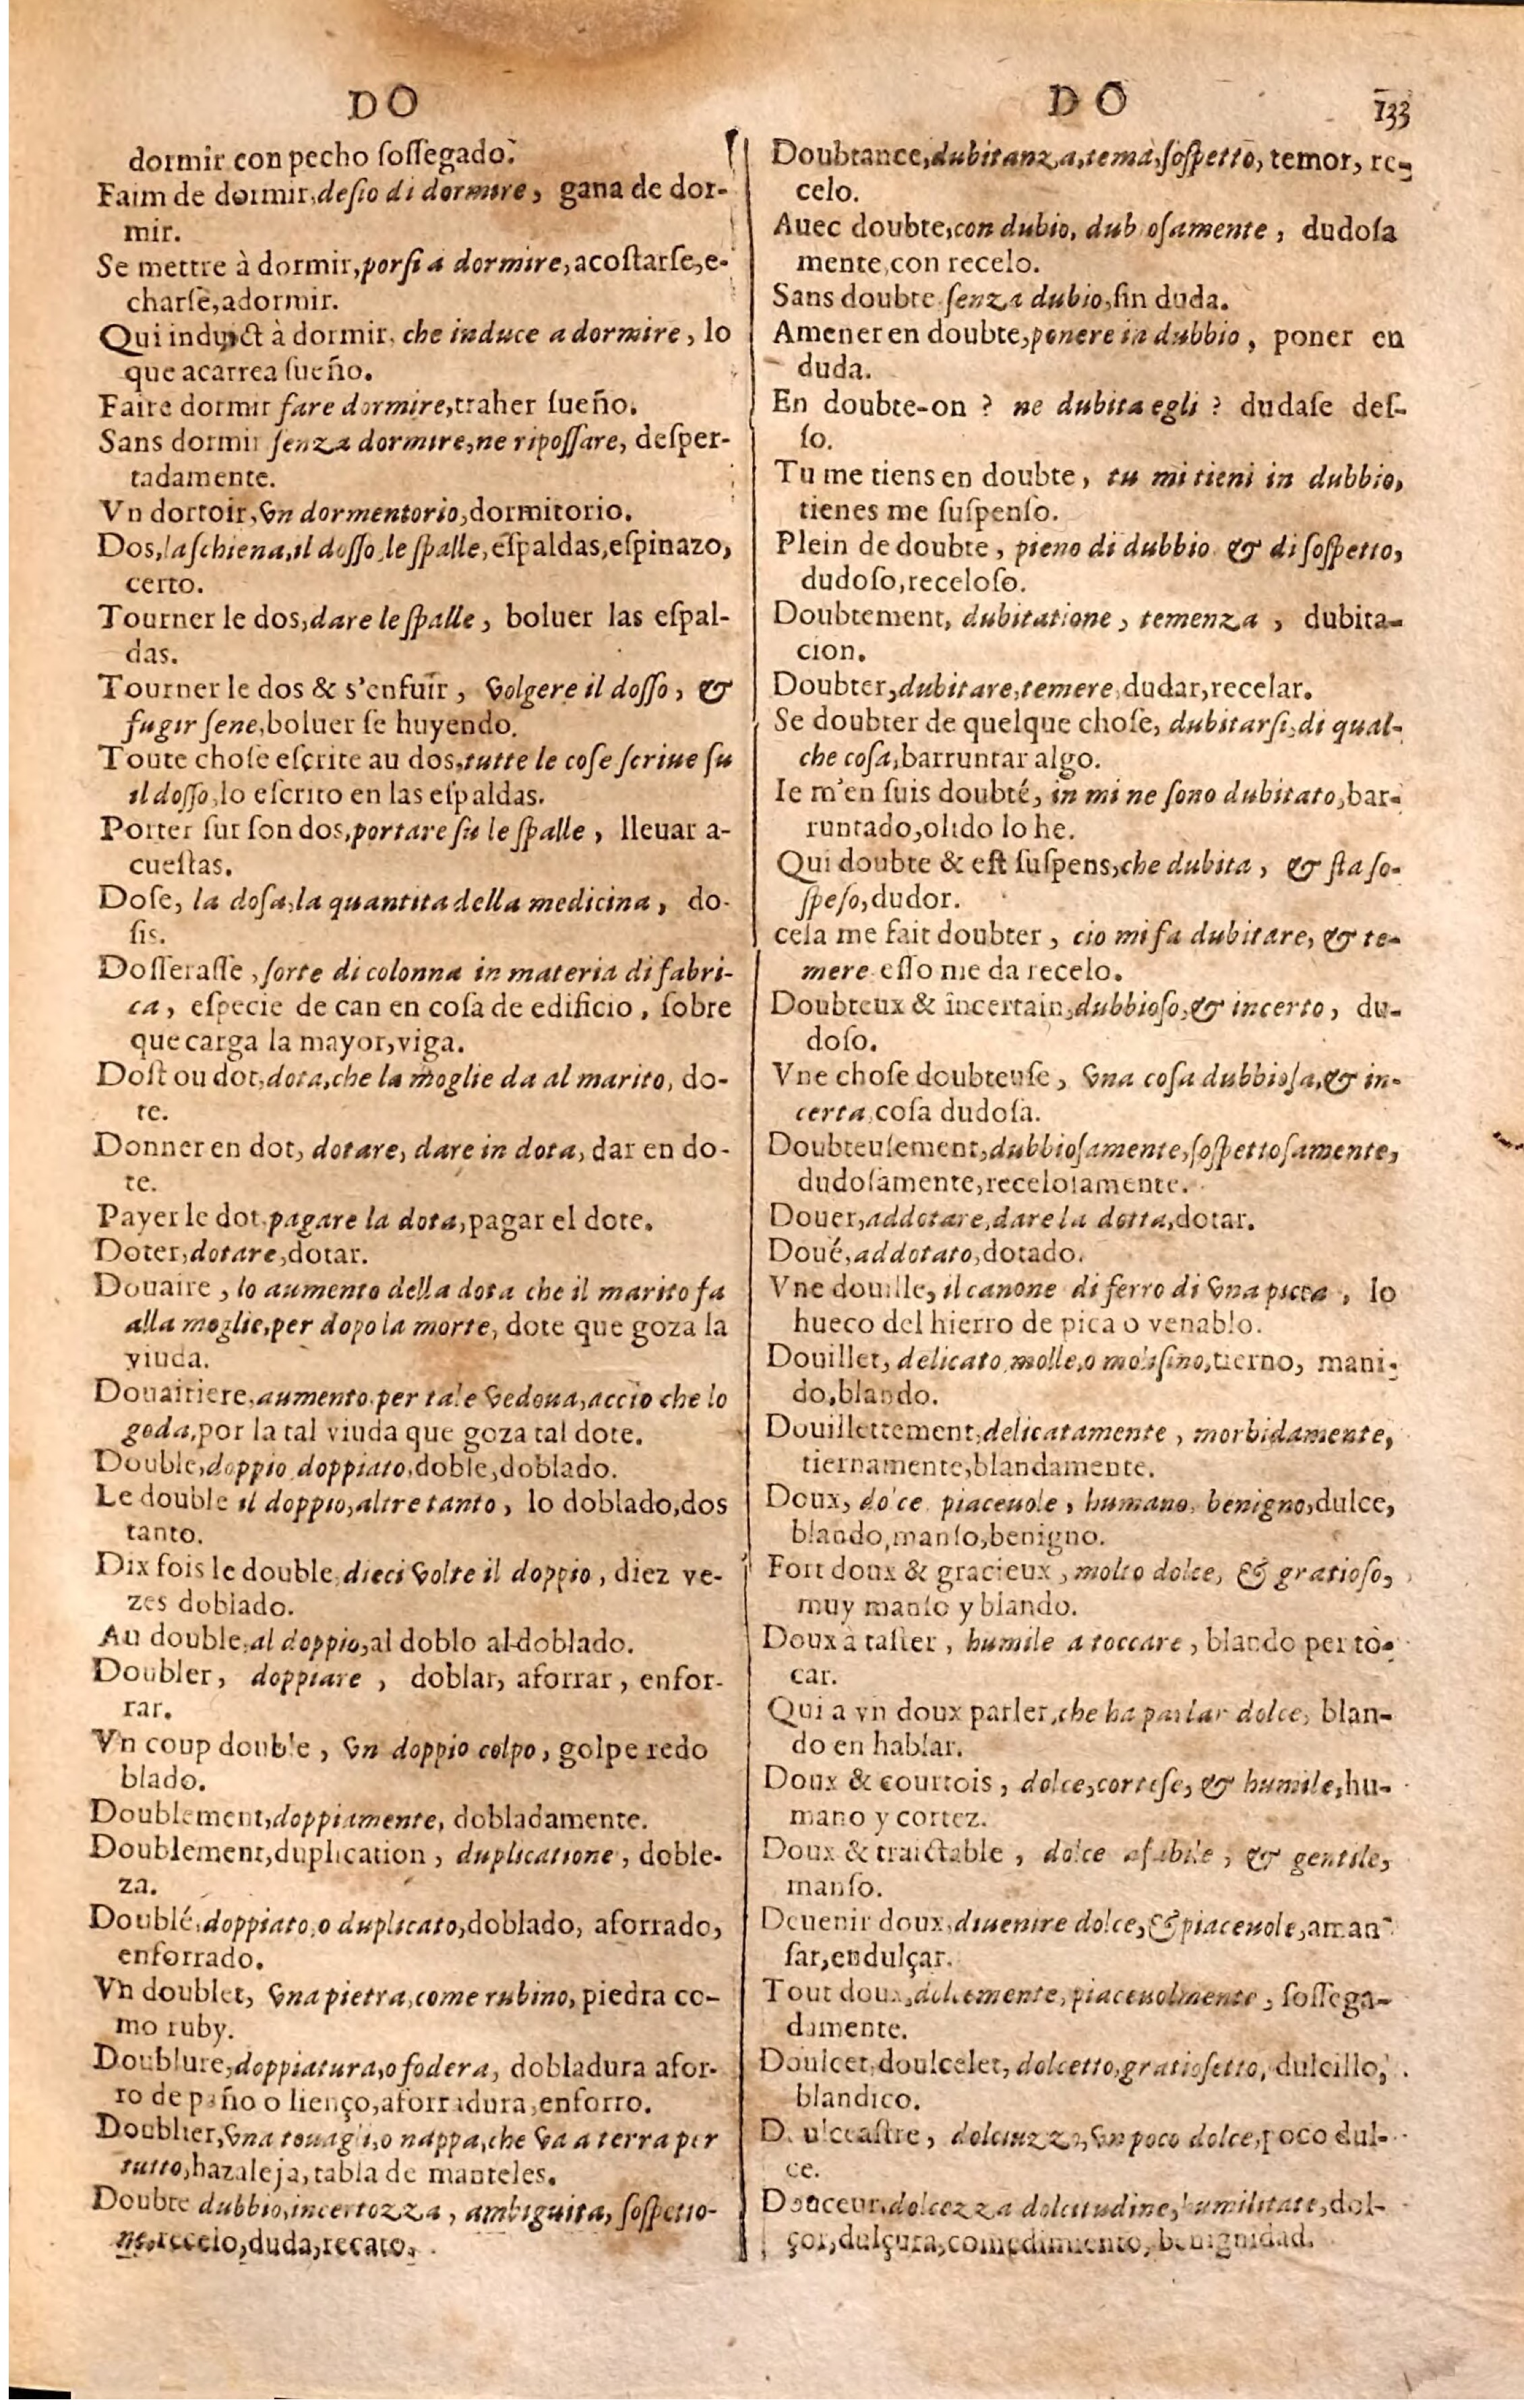 DO
dormir con pecho ſoſſegado.
Faim de dormir, deſio di dormire, gana de dor-
mir.
Se mettre à dormir, porſi a dormire, acoſtarſe, e-
charſe, adormir.
Qui induict à dormir, che induce a dormire, lo
que acarrea ſueño.
Faire dormir fare dormire, traher ſueño.
Sans dormir ſenza dormire, ne ripoſſare, deſper-
tadamente.
Vn dortoir, vn dormentorio, dormitorio.
Dos, la ſchiena, il doſſo, le ſpalle, eſpaldas, eſpinazo,
certo.
Tourner le dos, dare le ſpalle, boluer las eſpal-
das.
Tourner le dos & s'enfuir, volgere il doſſo, &
fugir ſene, boluer ſe huyendo.
Toute choſe eſcrite au dos, tutte le coſe ſcriue ſu
il doſſo, lo eſcrito en las eſpaldas.
Porter ſur ſon dos, portare ſu le ſpalle, lleuar a-
cueſtas.
Doſe, la doſa, la quantita della medicina, do-
ſis.
Doſſeraſſe, ſorte di colonna in materia di fabri-
ca, eſpecie de can en coſa de edificio, ſobre
que carga la mayor, viga.
Doſt ou dot, dota, che la moglie da al marito, do-
te.
Donner en dot, dotare, dare in dota, dar en do-
te.
Payer le dot, pagare la dota, pagar el dote.
Doter, dotare, dotar.
Douaire, lo aumento della dota che il marito fa
alla moglie, per dopo la morte, dote que goza la
viuda.
Douairiere, aumento per tale vedoua, accio che lo
goda, por la tal viuda que goza tal dote.
Double, doppio doppiato, doble, doblado.
Le double il doppio, altre tanto, lo doblado, dos
tanto.
Dix fois le double, dieci volte il doppio, diez ve-
zes doblado.
Au double, al doppio, al doblo al doblado.
Doubler, doppiare, doblar, aforrar, enfor-
rar.
Vn coup double, vn doppio colpo, golpe redo
blado.
Doublement, doppiamente, dobladamente.
Doublement, duplication, duplicatione, doble-
za.
Doublé, doppiato, o duplicato, doblado, aforrado,
enforrado.
Vn doublet, vna pietra, come rubino, piedra co-
mo ruby.
Doublure, doppiatura, o fodera, dobladura afor-
ro de paño o lienço, aforradura, enforro.
Doublier, vna touagli, o nappa, che va a terra per
tutto, hazaleja, tabla de manteles.
Doubte dubbio, incertozza, ambiguita, ſoſpetto-
ne, recelo, duda, recato.
DO 133
Doubtance, dubitanza, tema, ſoſpetto, temor, re-
celo.
Auec doubte, con dubio, dub oſamente, dudoſa
mente, con recelo.
Sans doubte ſenza dubio, ſin duda.
Amener en doubte, ponere in dubbio, poner en
duda.
En doubte-on ? ne dubita egli ? dudaſe deſ-
ſo.
Tu me tiens en doubte, tu mi tieni in dubbio,
tienes me ſuſpenſo.
Plein de doubte, pieno di dubbio & di ſoſpetto,
dudoſo, receloſo.
Doubtement, dubitatione, temenza, dubita-
cion.
Doubter, dubitare, temere, dudar, recelar.
Se doubter de quelque choſe, dubitarſi, di qual-
che coſa, barruntar algo.
Ie m'en ſuis doubté, in mi ne ſono dubitato, bar-
runtado, olido lo he.
Qui doubte & eſt ſuſpens, che dubita, & ſta ſo-
ſpeſo, dudor.
cela me fait doubter, cio mi fa dubitare, & te-
mere eſſo me da recelo.
Doubteux & incertain, dubbioſo, & incerto, du-
doſo.
Vne choſe doubteuſe, vna coſa dubbioſa, & in-
certa, coſa dudoſa.
Doubteuſement, dubbioſamente, ſoſpettoſamente,
dudoſamente, receloſamente.
Douer, addotare, dare la dotta, dotar.
Doué, addotato, dotado.
Vne douille, il canone di ferro di vna picca, lo
hueco del hierro de pica o venablo.
Douillet, delicato, molle, o moliſino, tierno, mani-
do, blando.
Douillettement, delicatamente, morbidamente,
tiernamente, blandamente.
Doux, dolce piaceuole, humano, benigno, dulce,
blando, manſo, benigno.
Fort doux & gracieux, molto dolce, & gratioſo,
muy manſo y blando.
Doux à taſter, humile a toccare, blando per to-
car.
Qui a vn doux parler, che ha parlar dolce, blan-
do en hablar.
Doux & courtois, dolce, corteſe, & humile, hu-
mano y cortez.
Doux & traictable, dolce afabile, & gentile,
manſo.
Deuenir doux, diuenire dolce, & piaceuole, aman-
ſar, endulçar.
Tout doux, dolcemente, piaceuolmente, ſoſſega-
damente.
Doulcet, doulcelet, dolcetto, gratioſetto, dulcillo,
blandico.
D. ulceaſtre, vn poco dolce, poco dul-
ce.
Douceur, dolcezza dolcitudine, humilitate, dol-
çor, dulçura, comedimiento, benignidad.